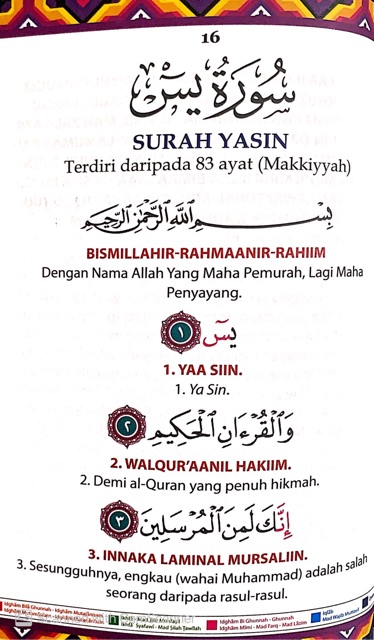 16
سُورَةُ يسٓ
SURAH YASIN
Terdiri daripada 83 ayat (Makkiyyah)
بِسْمِ اللَّهِ الرَّحْمَٰنِ الرَّحِيمِ
BISMILLAHIR-RAHMAANIR-RAHIIM
Dengan Nama Allah Yang Maha Pemurah, Lagi Maha
Penyayang.
يسٓ ١
1. YAA SIIN.
1. Ya Sin.
وَالْقُرْءَانِ الْحَكِيمِ ٢
2. WALQUR’AANIL HAKIIM.
2. Demi al-Quran yang penuh hikmah.
إِنَّكَ لَمِنَ الْمُرْسَلِينَ ٣
3. INNAKA LAMINAL MURSALIIN.
3. Sesungguhnya, engkau (wahai Muhammad) adalah salah
seorang daripada rasul-rasul.
Idghām Bilā Ghunnah - Idghām Mutajānisain
Ikhfā' Syafawi - Mad Ṣilah Ṭawīlah
Idghām Bi Ghunnah - Ghunnah
Idghām Mimi - Mad Farq - Mad Lāzim
Iqlāb
Mad Wajib Muttaṣil